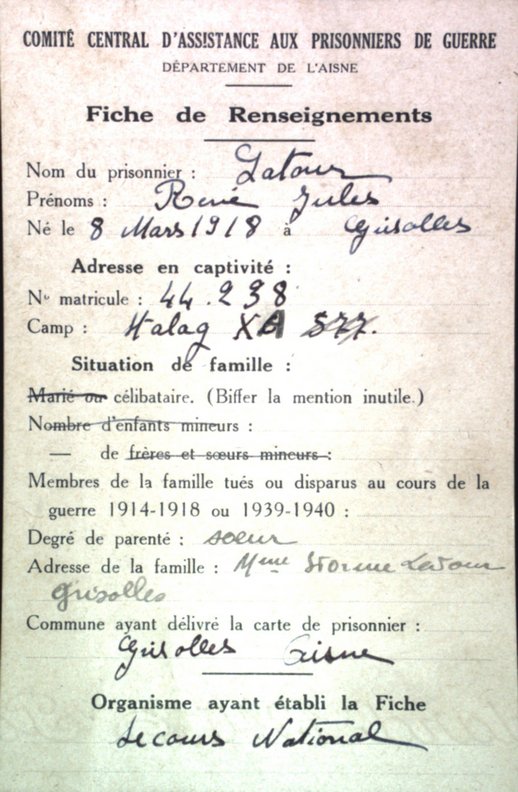 COMITÉ CENTRAL D'ASSISTANCE AUX PRISONNIERS DE GUERRE
DÉPARTEMENT DE L'AISNE
Fiche de Renseignements
Nom du prisonnier : Latour
Prénoms : René Jules
Né le 8 Mars 1918 à Grisolles
Adresse en captivité :
N° matricule : 44.238
Camp : Stalag XA 577.
Situation de famille :
Marié ou célibataire. (Biffer la mention inutile.)
Nombre d'enfants mineurs :
— de frères et sœurs mineurs :
Membres de la famille tués ou disparus au cours de la
guerre 1914-1918 ou 1939-1940 :
Degré de parenté : soeur
Adresse de la famille : Mme Latour
Grisolles
Commune ayant délivré la carte de prisonnier :
Grisolles Aisne
Organisme ayant établi la Fiche
Secours National